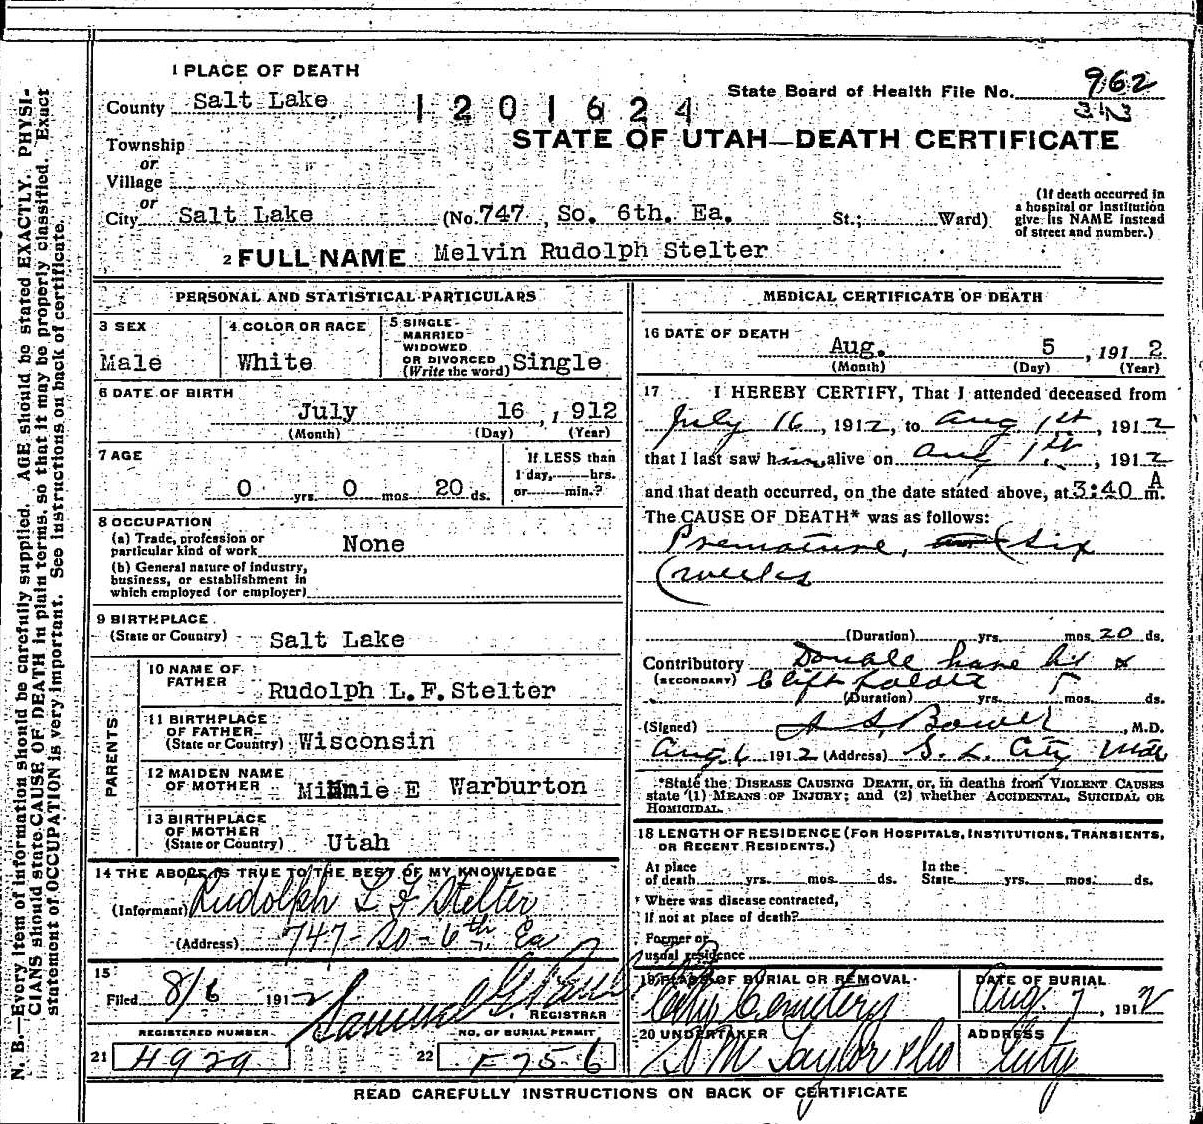 N. B.—Every item of information should be carefully supplied. AGE should be stated EXACTLY. PHYSI-
CIANS should state CAUSE OF DEATH in plain terms, so that it may be properly classified. Exact
statement of OCCUPATION is very important. See instructions on back of certificate.
1 PLACE OF DEATH
County Salt Lake
1201624
State Board of Health File No. 962
STATE OF UTAH—DEATH CERTIFICATE
Township
or
Village
or
City Salt Lake (No. 747, So. 6th. Ea. St.; Ward)
(If death occurred in
a hospital or institution
give its NAME instead
of street and number.)
2 FULL NAME Melvin Rudolph Stelter
PERSONAL AND STATISTICAL PARTICULARS
3 SEX
Male
4 COLOR OR RACE
White
5 SINGLE
MARRIED
WIDOWED
OR DIVORCED
(Write the word) Single
6 DATE OF BIRTH
July 16, 1912
(Month) (Day) (Year)
7 AGE
0 yrs. 0 mos. 20 ds.
If LESS than
1 day, hrs.
or min.?
8 OCCUPATION
(a) Trade, profession or
particular kind of work None
(b) General nature of industry,
business, or establishment in
which employed (or employer)
9 BIRTHPLACE
(State or Country) Salt Lake
PARENTS
10 NAME OF
FATHER Rudolph L.F. Stelter
11 BIRTHPLACE
OF FATHER
(State or Country) Wisconsin
12 MAIDEN NAME
OF MOTHER Minnie E Warburton
13 BIRTHPLACE
OF MOTHER
(State or Country) Utah
14 THE ABOVE IS TRUE TO THE BEST OF MY KNOWLEDGE
(Informant) Rudolph L F Stelter
(Address) 747-So-6th Ea
15
Filed 8/6 1912 Samuel G.
REGISTRAR
REGISTERED NUMBER
21 4929
NO. OF BURIAL PERMIT
22 F 756
MEDICAL CERTIFICATE OF DEATH
16 DATE OF DEATH
Aug. 5, 1912
(Month) (Day) (Year)
17 I HEREBY CERTIFY, That I attended deceased from
July 16, 1912, to Aug 1st, 1912
that I last saw him alive on Aug 1st, 1912
and that death occurred, on the date stated above, at 3:40 A m.
The CAUSE OF DEATH* was as follows:
Premature, (six
weeks
(Duration) yrs. mos. 20 ds.
Contributory Double hare lip &
(SECONDARY) Cleft Palate
(Duration) yrs. mos. ds.
(Signed) A S Bower, M.D.
Aug 6 1912 (Address) S. L. City Utah
*State the DISEASE CAUSING DEATH, or, in deaths from VIOLENT CAUSES
state (1) MEANS OF INJURY; and (2) whether ACCIDENTAL, SUICIDAL OR
HOMICIDAL.
18 LENGTH OF RESIDENCE (FOR HOSPITALS, INSTITUTIONS, TRANSIENTS,
OR RECENT RESIDENTS.)
At place
of death yrs. mos. ds.
In the
State yrs. mos. ds.
Where was disease contracted,
if not at place of death?
Former or
usual residence
19 PLACE OF BURIAL OR REMOVAL
City Cemetery
DATE OF BURIAL
Aug 7, 1912
20 UNDERTAKER
S M Taylor & Co
ADDRESS
City
READ CAREFULLY INSTRUCTIONS ON BACK OF CERTIFICATE